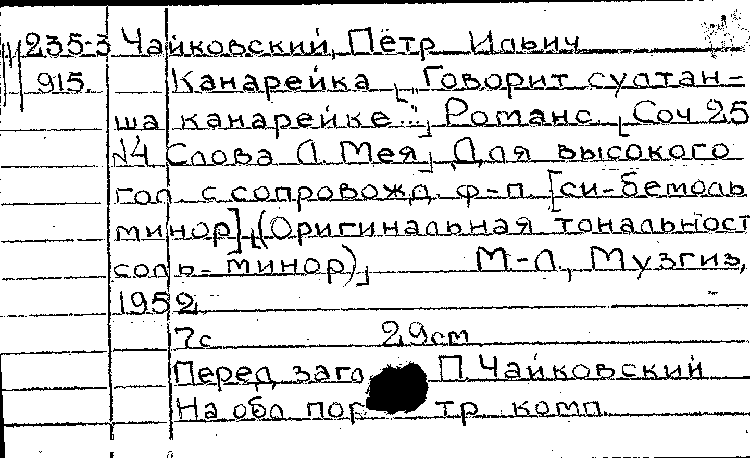 235-3 Чайковский, Пётр Ильич
915. Канарейка [„Говорит султан-
ша канарейке..."] Романс. [Соч 25
№4 Слова Л. Мея] Для высокого
гол. с сопровожд. ф-п. [си-бемоль
минор] [(Оригинальная тональност
соль-минор)] М-Л., Музгиз,
1952
7с 29см
Перед заго П. Чайковский
На обл пор тр комп.